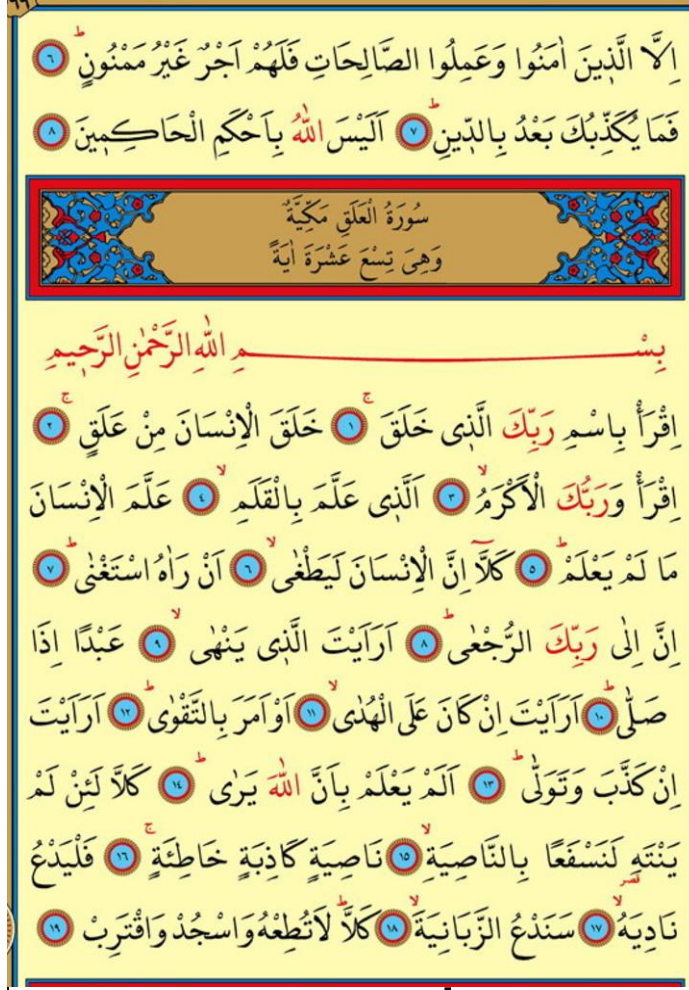 ٦٦
اِلَّا الَّذ۪ينَ اٰمَنُوا وَعَمِلُوا الصَّالِحَاتِ فَلَهُمْ اَجْرٌ غَيْرُ مَمْنُونٍۜ ﴿٦﴾
فَمَا يُكَذِّبُكَ بَعْدُ بِالدّ۪ينِۜ ﴿٧﴾ اَلَيْسَ اللّٰهُ بِاَحْكَمِ الْحَاكِم۪ينَ ﴿٨﴾
سُورَةُ الْعَلَقِ مَكِّيَّةٌ
وَهِيَ تِسْعَ عَشْرَةَ اٰيَةً
بِسْمِ اللّٰهِ الرَّحْمٰنِ الرَّح۪يمِ
اِقْرَأْ بِاسْمِ رَبِّكَ الَّذ۪ي خَلَقَۚ ﴿١﴾ خَلَقَ الْاِنْسَانَ مِنْ عَلَقٍۚ ﴿٢﴾
اِقْرَأْ وَرَبُّكَ الْاَكْرَمُۙ ﴿٣﴾ اَلَّذ۪ي عَلَّمَ بِالْقَلَمِۙ ﴿٤﴾ عَلَّمَ الْاِنْسَانَ
مَا لَمْ يَعْلَمْۜ ﴿٥﴾ كَلَّٓا اِنَّ الْاِنْسَانَ لَيَطْغٰىۙ ﴿٦﴾ اَنْ رَاٰهُ اسْتَغْنٰىۜ ﴿٧﴾
اِنَّ اِلٰى رَبِّكَ الرُّجْعٰىۜ ﴿٨﴾ اَرَاَيْتَ الَّذ۪ي يَنْهٰىۙ ﴿٩﴾ عَبْدًا اِذَا
صَلّٰىۜ ﴿١٠﴾ اَرَاَيْتَ اِنْ كَانَ عَلَى الْهُدٰىۙ ﴿١١﴾ اَوْ اَمَرَ بِالتَّقْوٰىۜ ﴿١٢﴾ اَرَاَيْتَ
اِنْ كَذَّبَ وَتَوَلّٰىۜ ﴿١٣﴾ اَلَمْ يَعْلَمْ بِاَنَّ اللّٰهَ يَرٰىۜ ﴿١٤﴾ كَلَّا لَئِنْ لَمْ
يَنْتَهِ لَنَسْفَعًا بِالنَّاصِيَةِۙ ﴿١٥﴾ نَاصِيَةٍ كَاذِبَةٍ خَاطِئَةٍۚ ﴿١٦﴾ فَلْيَدْعُ
قصر
نَادِيَهُۙ ﴿١٧﴾ سَنَدْعُ الزَّبَانِيَةَۙ ﴿١٨﴾ كَلَّاۜ لَا تُطِعْهُ وَاسْجُدْ وَاقْتَرِبْ ﴿١٩﴾